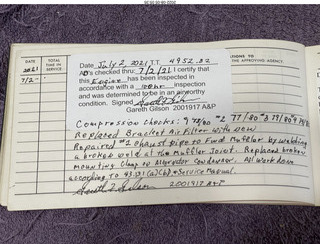 DATE
TOTAL TIME IN SERVICE
2021
7/2
Date July 2, 2021 TT 4952.22
AD's checked thru: 7/2/21 I certify that
this Engine has been inspected in
accordance with a 100 hr inspection
and was determined to be in an airworthy
condition. Signed
Gareth Gilson 2001917 A&P
Compression checks: #1 78/80 #2 77/80 #3 79/80
Replaced Bracket Air Filter with new
Repaired #2 exhaust pipe to Fwd Muffler by welding
a broken weld at the Muffler Joint. Replaced broken
mounting Clamp on Alternator Condenser. All work done
according to 43.13 1A(C)b) & Service Manual.
2001917 A&P